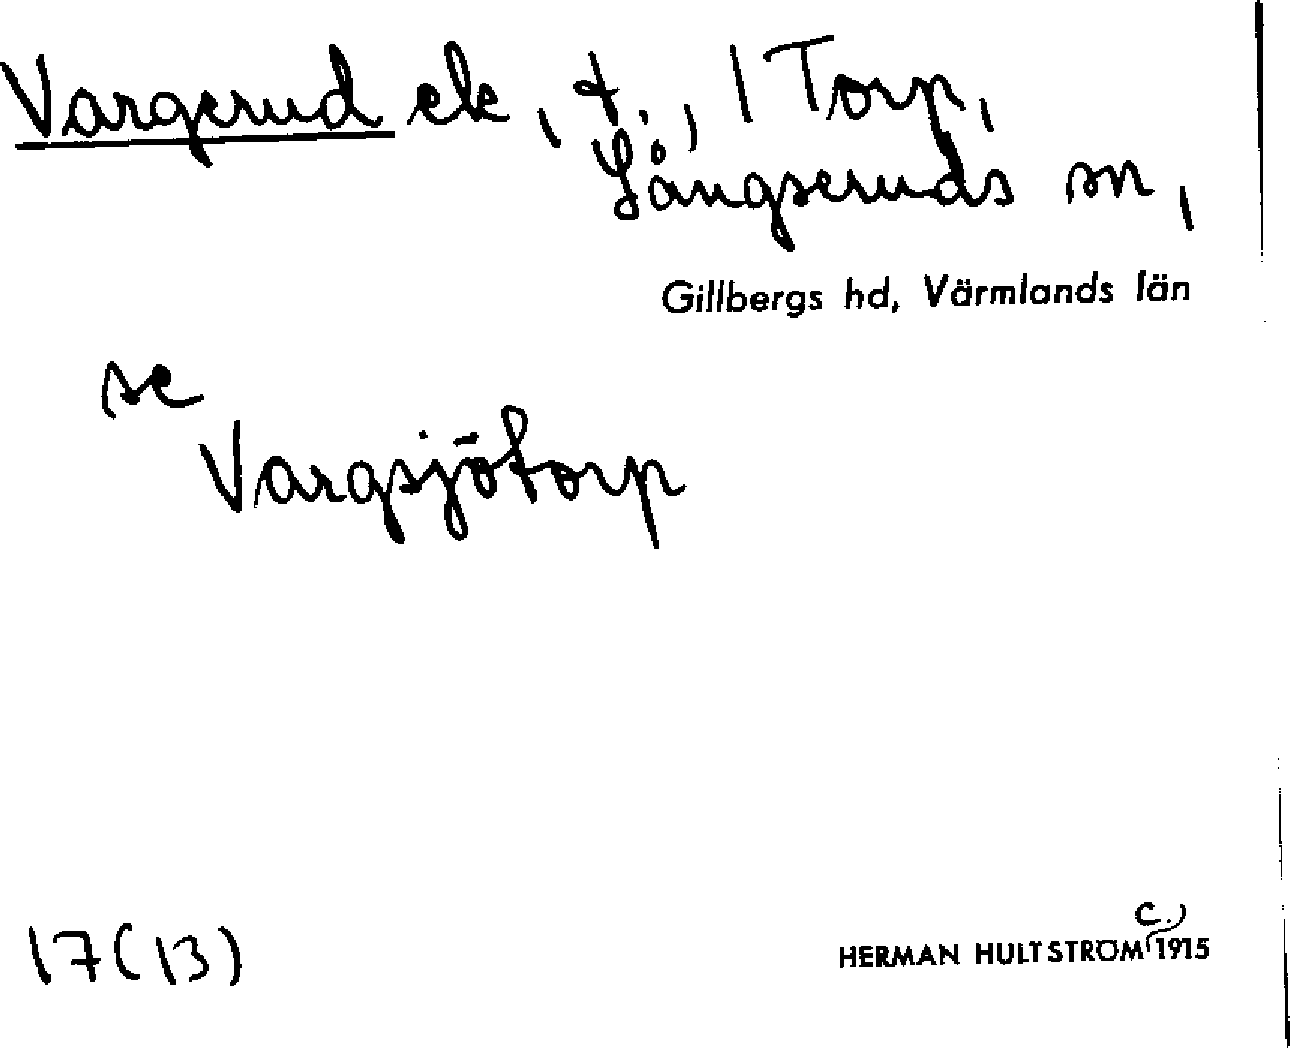 Vargerud ek, t., 1 Torp,
Långseruds sn,
Gillbergs hd, Värmlands län
se
Vargsjötorp
c.
17(13)
HERMAN HULTSTRÖM 1915